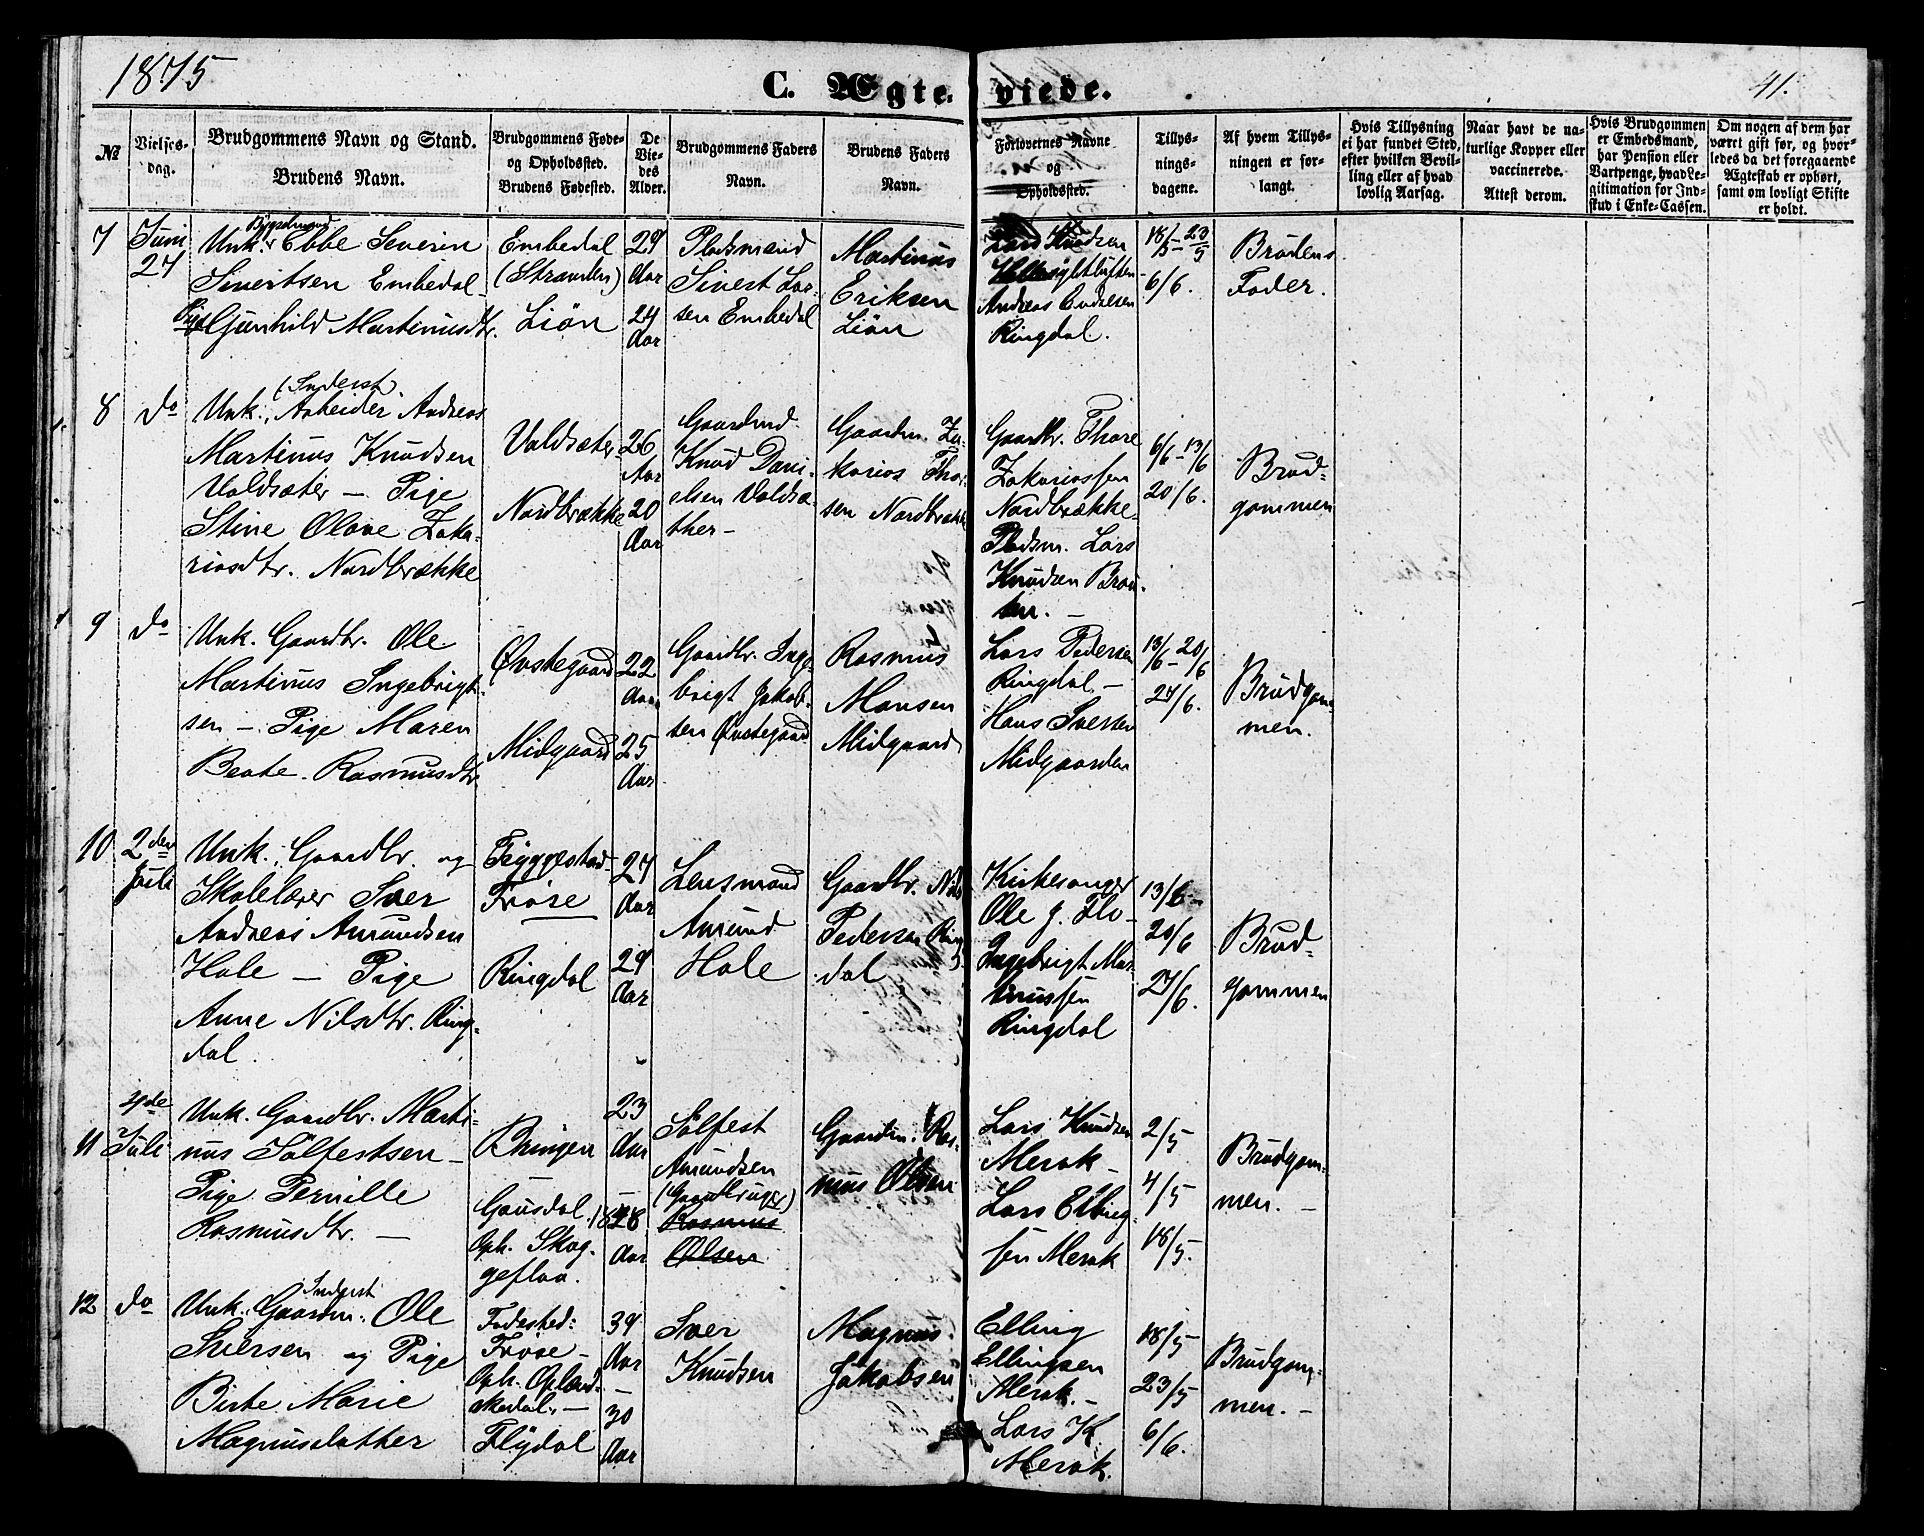 1875
C. Ægte-
viede.
41.
№
Vielses-
dag.
Brudgommens Navn og Stand.
Brudens Navn.
Brudgommens Føde-
og Opholdssted.
Brudens Fødested.
De
Vie-
des
Alder.
Brudgommens Faders
Navn.
Brudens Faders
Navn.
Forlovernes Navne
og
Opholdssted.
Tillys-
nings-
dagene.
Af hvem Tillys-
ningen er for-
langt.
Hvis Tillysning
ei har fundet Sted,
efter hvilken Bevil-
ling eller af hvad
lovlig Aarsag.
Naar havt de na-
turlige Kopper eller
vaccinerede.
Attest derom.
Hvis Brudgommen
er Embedsmand,
har Pension eller
Vartpenge, hvad Le-
gitimation for Ind-
skud i Enke-Cassen.
Om nogen af dem har
været gift før, og hvor-
ledes da det foregaaende
Ægteskab er ophørt,
samt om lovligt Skifte
er holdt.
7
Juni
27
Bygselmand
Unk. Ebbe Severin
Sivertsen Embedal
Pige Gunhild Martinusdtr.
Embedal
(Stranden)
Liøn
29
Aar
24
Aar
Pladsmand
Sivert Lar-
sen Embedal
Martinus
Eriksen
Liøn
Lars Knudsen
Andreas
Ringdal.
18/5 - 23/5
6/6.
Brudens
Fader.
8
do
(Inderst)
Unk. Arbeider Andreas
Martinus Knudsen
Valdsæter - Pige
Stine Olave Zaka-
riasdtr. Nordbrække
Valdsæter
Nordbrække
26
Aar
20
Aar
Gaardmd.
Knud Dani-
elsen Valdsæ-
ther -
Gaardm. Za-
karias Thor-
sen Nordbrække
Gaardbr. Thore
Zakariassen
Nordbrække -
Pladsm. Lars
Knudsen Brau-
ten. -
6/6 - 13/6
20/6.
Brud-
gommen
9
do
Unk. Gaardbr. Ole
Martinus Ingebrigt-
sen - Pige Maren
Beate Rasmusdtr.
Øvstegaard
Midgaard
22
Aar
25
Aar
Gaardbr. Inge-
brigt Jakob-
sen Øvstegaard
Rasmus
Monsen
Midgaard
Lars Pedersen
Ringdal -
Hans Iversen
Midgaarden
13/6 - 20/6
27/6.
Brudgom-
men.
10
2den
Juli
Unk. Gaardbr. og
Skolelærer Iver
Andreas Amundsen
Hole - Pige
Anne Nilsdtr. Ring-
dal.
Tryggestad
Frøse
Ringdal
27
Aar
29
Aar
Lensmand
Amund
Hole
Gaardbr. Nils
Pedersen Ring-
dal
Kirkesanger
Ole J. Flo -
Ingebrigt Mar-
tinussen
Ringdal
13/6 -
20/6
27/6.
Brud-
gommen
11
4de
Juli
Unk. Gaardbr. Marti-
nus Sølfestsen -
Pige Pernille
Rasmusdtr. -
Bringen
Gausdal
Oph. Skag-
geflaa.
23
Aar
28
Aar
Sølfest
Amundsen
(Gaardbruger)
Rasmus
Olsen
Gaardm. Ras-
mus Olsen
Lars Knudsen
Merok -
Lars Elling-
sen Merok
2/5
4/5
18/5.
Brudgom-
men. -
12
do
Inderst
Unk. Gaardm. Ole
Iversen og Pige
Birte Marie
Magnusdatter
Fødested:
Frøse -
Oph. Oplænd-
skedal. -
Flydal
39
Aar
-
30
Aar
Iver
Knudsen
Magnus
Jakobsen
Elling
Ellingsen
Merok. -
Lars K
Merok.
18/5
23/5
6/6.
Brudgom-
men. -